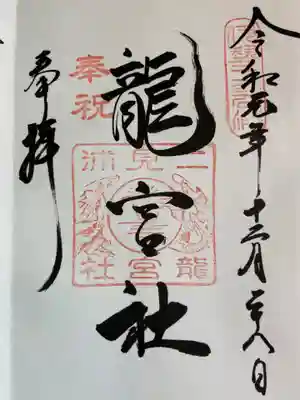 令和元年十二月二十八日
龍宮社
奉祝
二見浦
龍宮社
奉拝